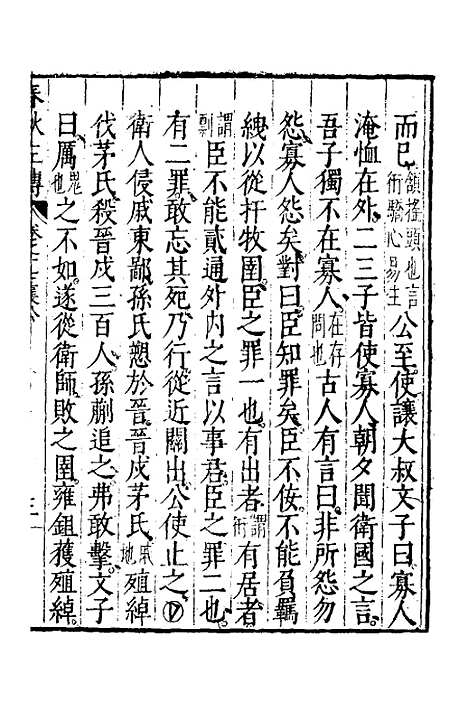 而巳頷搖頭也言衎驕心易生公至使讓大叔文子曰寡人
淹恤在外二三子皆使寡人朝夕聞衛國之言
吾子獨不在寡人在存問也古人有言曰非所怨勿
怨寡人怨矣對曰臣知罪矣臣不佞不能負羈
絏以從扞牧圉臣之罪一也有出者謂衎有居者
謂剽臣不能貳通外内之言以事君臣之罪二也
有二罪敢忘其死乃行從近關出公使止之
衛人侵戚東鄙孫氏愬於晉晉戍茅氏地殖綽
伐茅氏殺晉戍三百人孫蒯追之弗敢擊文子
曰厲也之不如遂從衛師敗之圉雍鉏獲殖綽
春秋三傳